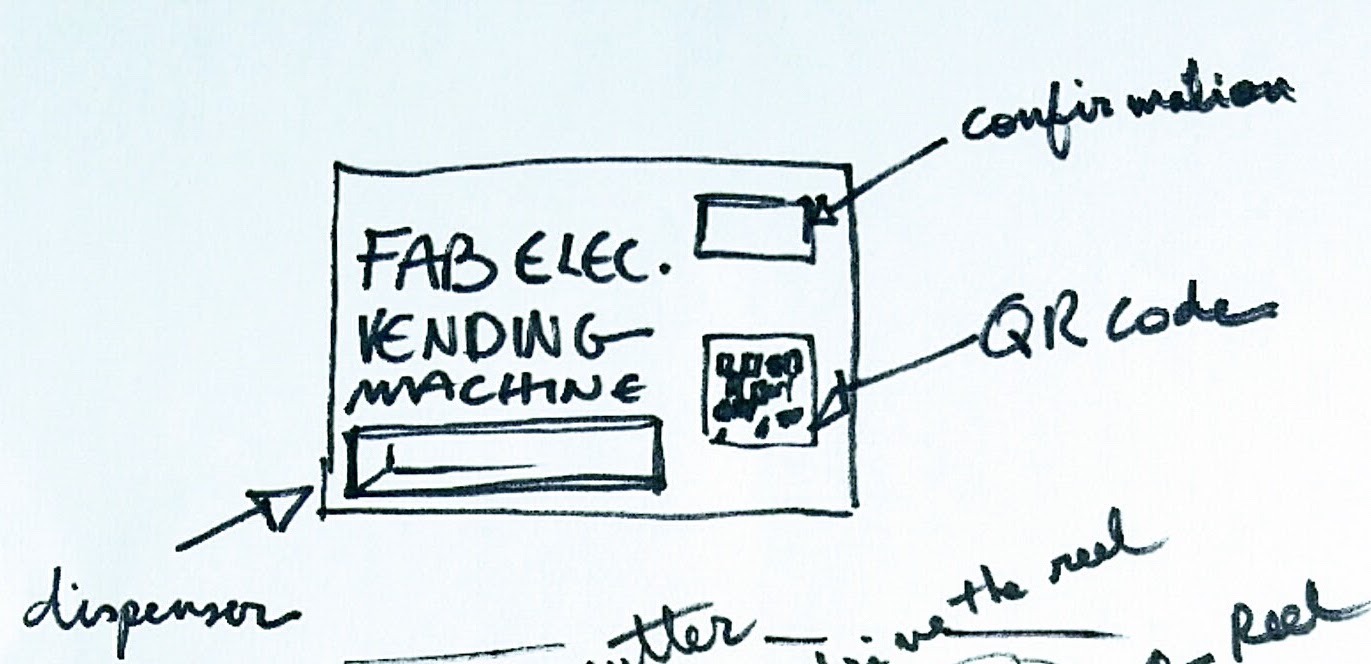 confirmation
FAB ELEC.
VENDING
MACHINE
QR code
dispensor
the reel
Reel